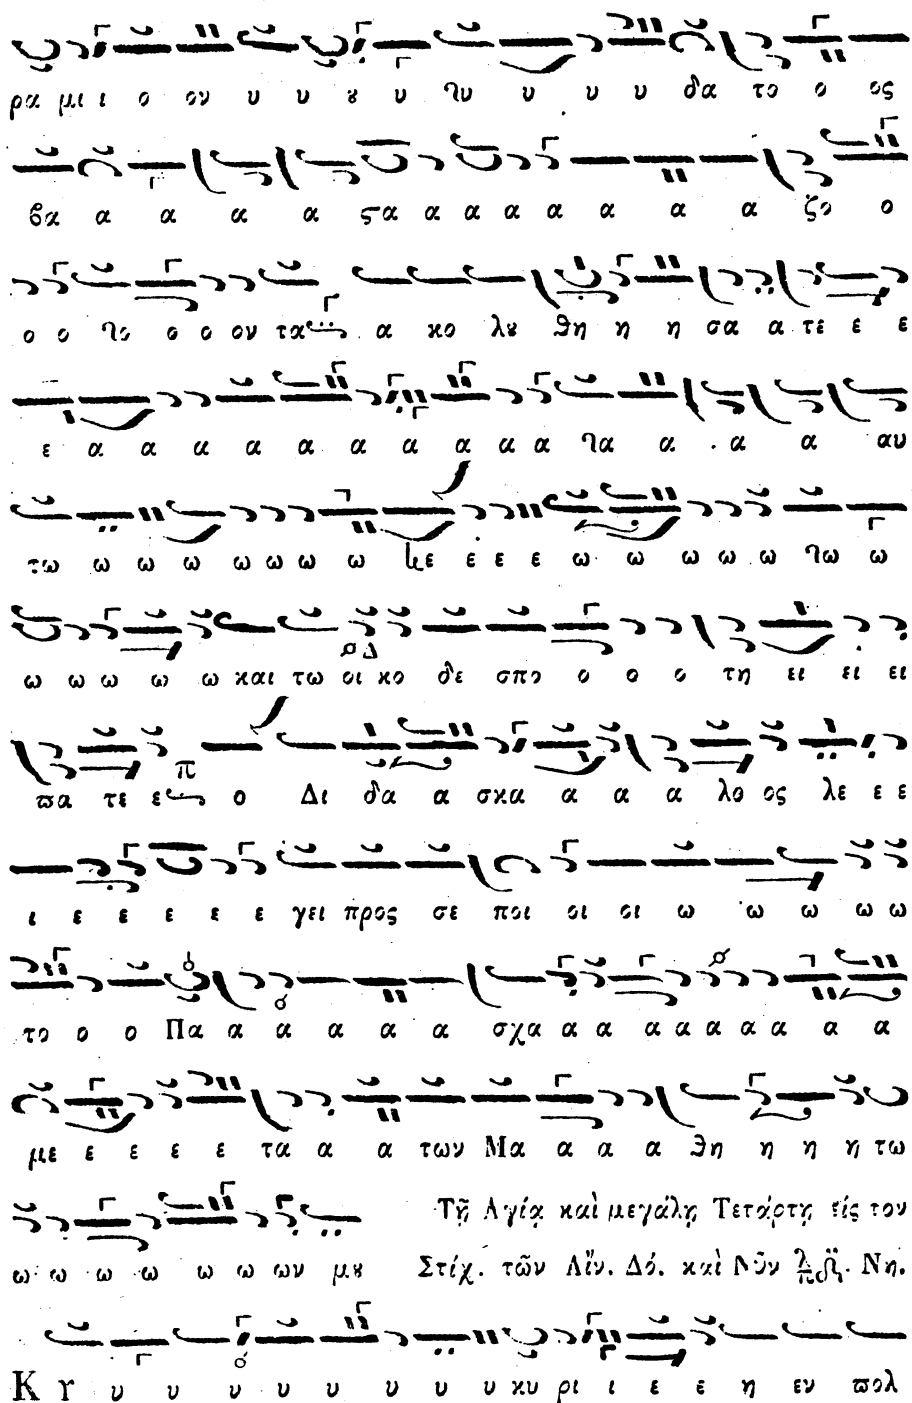 ρα μι ι ο ον υ υ ȣ υ ϡυ υ υ υ δα το ο ος
βα α α α α ϛα α α α α α α α ζο ο
ο ο ϡο ο ο ον τα α κο λȣ θη η η σα α τε ε ε
ε α α α α α α α α α α ϡα α α α αυ
τω ω ω ω ω ω ω ω με ε ε ε ω ω ω ω ω ϡω ω
ω ω ω ω ω και τω οι κο δε σπο ο ο ο τη ει ει ει
ϖα τε ε ο Δι δα α σκα α α α λο ος λε ε ε
ι ε ε ε ε ε ε γει προς σε ποι οι οι ω ω ω ω ω
το ο ο Πα α α α α α σχα α α α α α α α α α
με ε ε ε ε τα α α των Μα α α α θη η η η τω
ω ω ω ω ω ω ων μȣ
Τῇ Αγίᾳ καὶ μεγάλῃ Τετάρτῃ εἰς τον
Στίχ. τῶν Αἴν. Δό. καὶ Νῦν Νη.
Κ υ υ υ υ υ υ υ υ υ κυ ρι ι ε ε η εν ϖολ